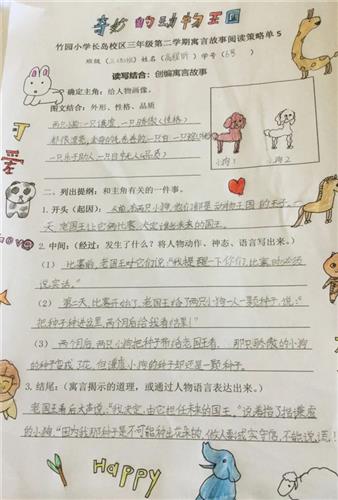 奇妙的动物王国
竹园小学长岛校区三年级第二学期寓言故事阅读策略单 5
班级 姓名 学号
读写结合：创编寓言故事
一、确定主角：给人物画像。
图文结合：外形、性格、品质
两只小狗：一只谦虚 一只骄傲（性格）
都很漂亮
一只乐于助人 一只自私（品质）
小狗1 小狗2
可
爱
二、列出提纲：和主角有关的一件事。
1. 开头（起因）：从前，有两只小狗，他们都是动物王国的王子，一
天，老国王让它俩比赛，决定谁当未来的国王。
2. 中间：（经过：发生了什么？将人物动作、神态、语言写出来。）
（1） 比赛前，老国王对它们说：“我提醒一下你们，比赛时必须
说实话。”
（2） 第二天，比赛开始了，老国王给了两只小狗一人一颗种子，说：“
把种子种进土里，两个月后给我看结果！”
（3） 两个月后，两只小狗把种子带给老国王看，那只骄傲的小狗
的种子变成了花，但谦虚小狗的种子却还是一颗种子。
3. 结尾：（寓言揭示的道理，或通过人物语言表达出来。）
老国王看后大声说：“我决定，由它担任未来的国王。”说着指了指谦虚
的小狗，“因为我那种子是不可能种出花来的，做人要诚实守信，不能说谎！”
Happy